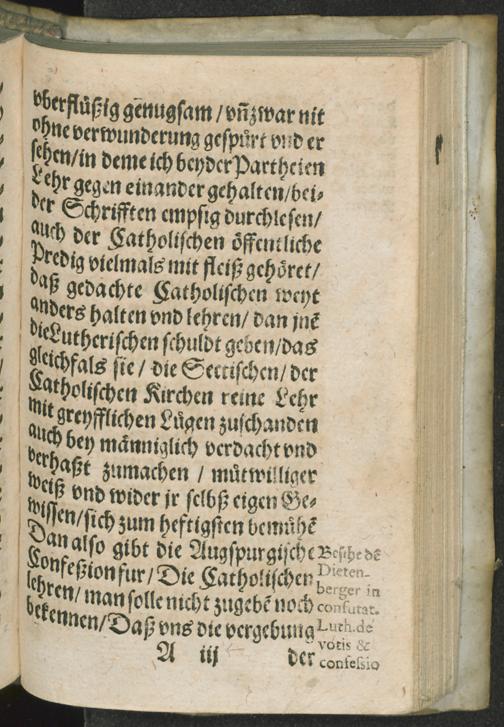 vberflüßig genugsam / vñ zwar nit
ohne verwunderung gespürt vnd er
sehen / in deme ich beyder Partheien
Lehr gegen einander gehalten / bei⸗
der Schrifften empsig durchlesen /
auch der Catholischen öffentliche
Predig vielmals mit fleiß gehöret /
daß gedachte Catholischen weyt
anders halten vnd lehren / dan jnē
die Lutherischen schuldt geben / das
gleichfals sie / die Sectischen / der
Catholischen Kirchen reine Lehr
mit greyfflichen Lügen zuschanden
auch bey männiglich verdacht vnd
verhaßt zumachen / mütwilliger
weiß vnd wider jr selbß eigen Ge⸗
wissen / sich zum hefftigsten bemühē
Dan also gibt die Augspurgische
Confeßion fur / Die Catholischen
lehren / man solle nicht zugebē noch
bekennen / Daß vns die vergebung
A iij der
Besihe dē
Dieten-
berger in
confutat.
Luth. de
votis &
confessio